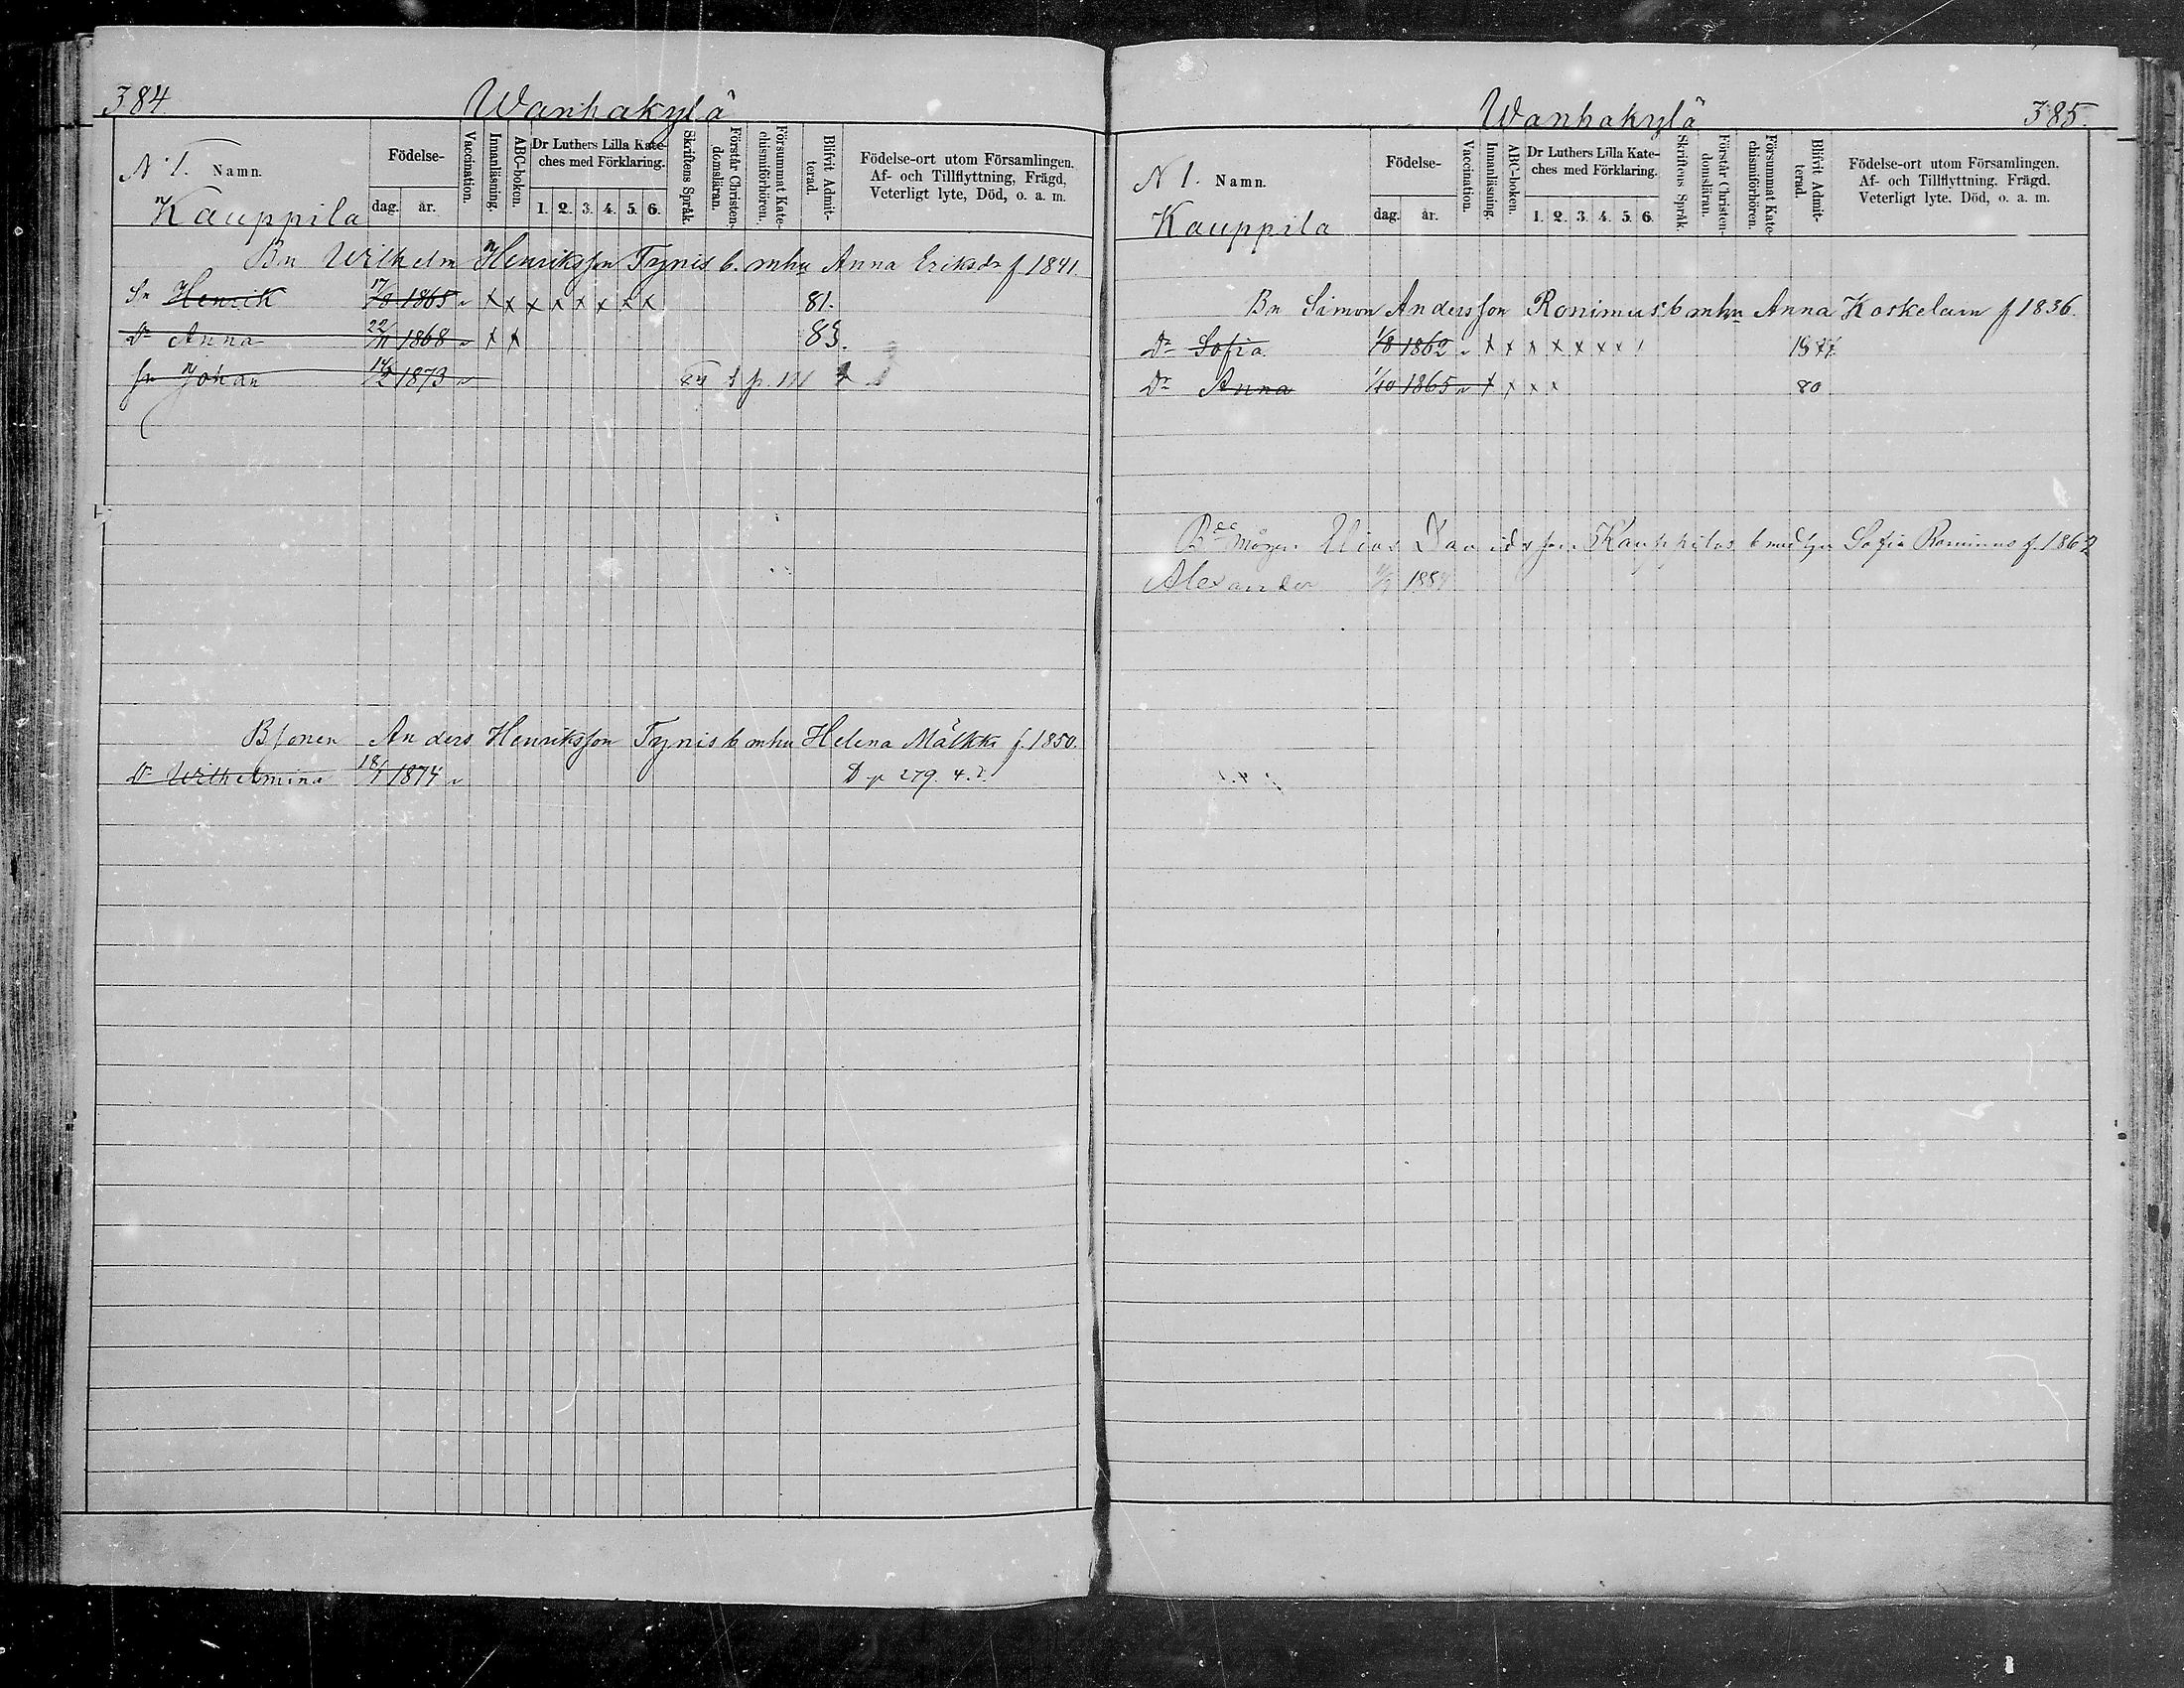 384.
Wanhakylä
N 1. Namn.
Kauppila
Födelse-
dag. år.
Vaccination.
Innanläsning.
ABC-boken.
Dr Luthers Lilla Kate-
ches med Förklaring.
1. 2. 3. 4. 5. 6.
Skriftens Språk.
Förstår Christen-
domsläran.
Försummat Kate-
chismiförhören.
Blifvit Admit-
terad.
Födelse-ort utom Församlingen.
Af- och Tillflyttning, Frägd,
Veterligt lyte, Död, o. a. m.
Bn Wilhelm Henriksson Tynis b. m hu Anna Eriksdr f 1841.
Sn Henrik 17/8 1865 v x x x x x x x x 81.
Dr Anna 22/11 1868 v x x 83.
Sn Johan 1873 v
Bsonen Anders Henriksson Tynis b m hu Helena Mälkki f. 1850.
Dr Wilhelmina 18/1 1874 v D p 279. 4.
Wanhakylä
385.
N 1. Namn.
Kauppila
Födelse-
dag. år.
Vaccination.
Innanläsning.
ABC-boken.
Dr Luthers Lilla Kate-
ches med Förklaring.
1. 2. 3. 4. 5. 6.
Skriftens Språk.
Förstår Christen-
domsläran.
Försummat Kate-
chismiförhören.
Blifvit Admit-
terad.
Födelse-ort utom Församlingen.
Af- och Tillflyttning. Frägd.
Veterligt lyte. Död, o. a. m.
Bn Simon Andersson Ronimus b m hu Anna Koskelain f 1836.
Dr Sofia 1/8 1862 v x x x x x x x 1877.
Dr Anna 1/10 1865 v x x x x 80
mågen Elias Davidsson Kauppilas b med hu Sofia Ronimus f. 1862
Alexander 1884